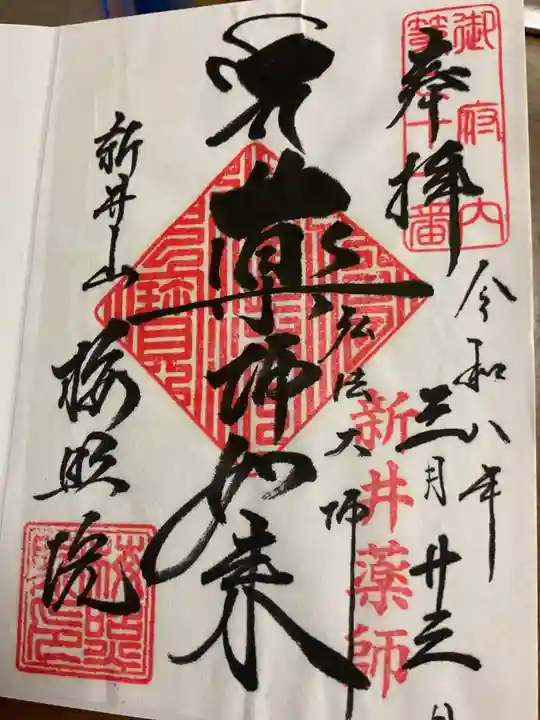 奉拝
令和八年
三月廿三日
新井薬師
弘法大師
薬師如来
新井山
梅照院